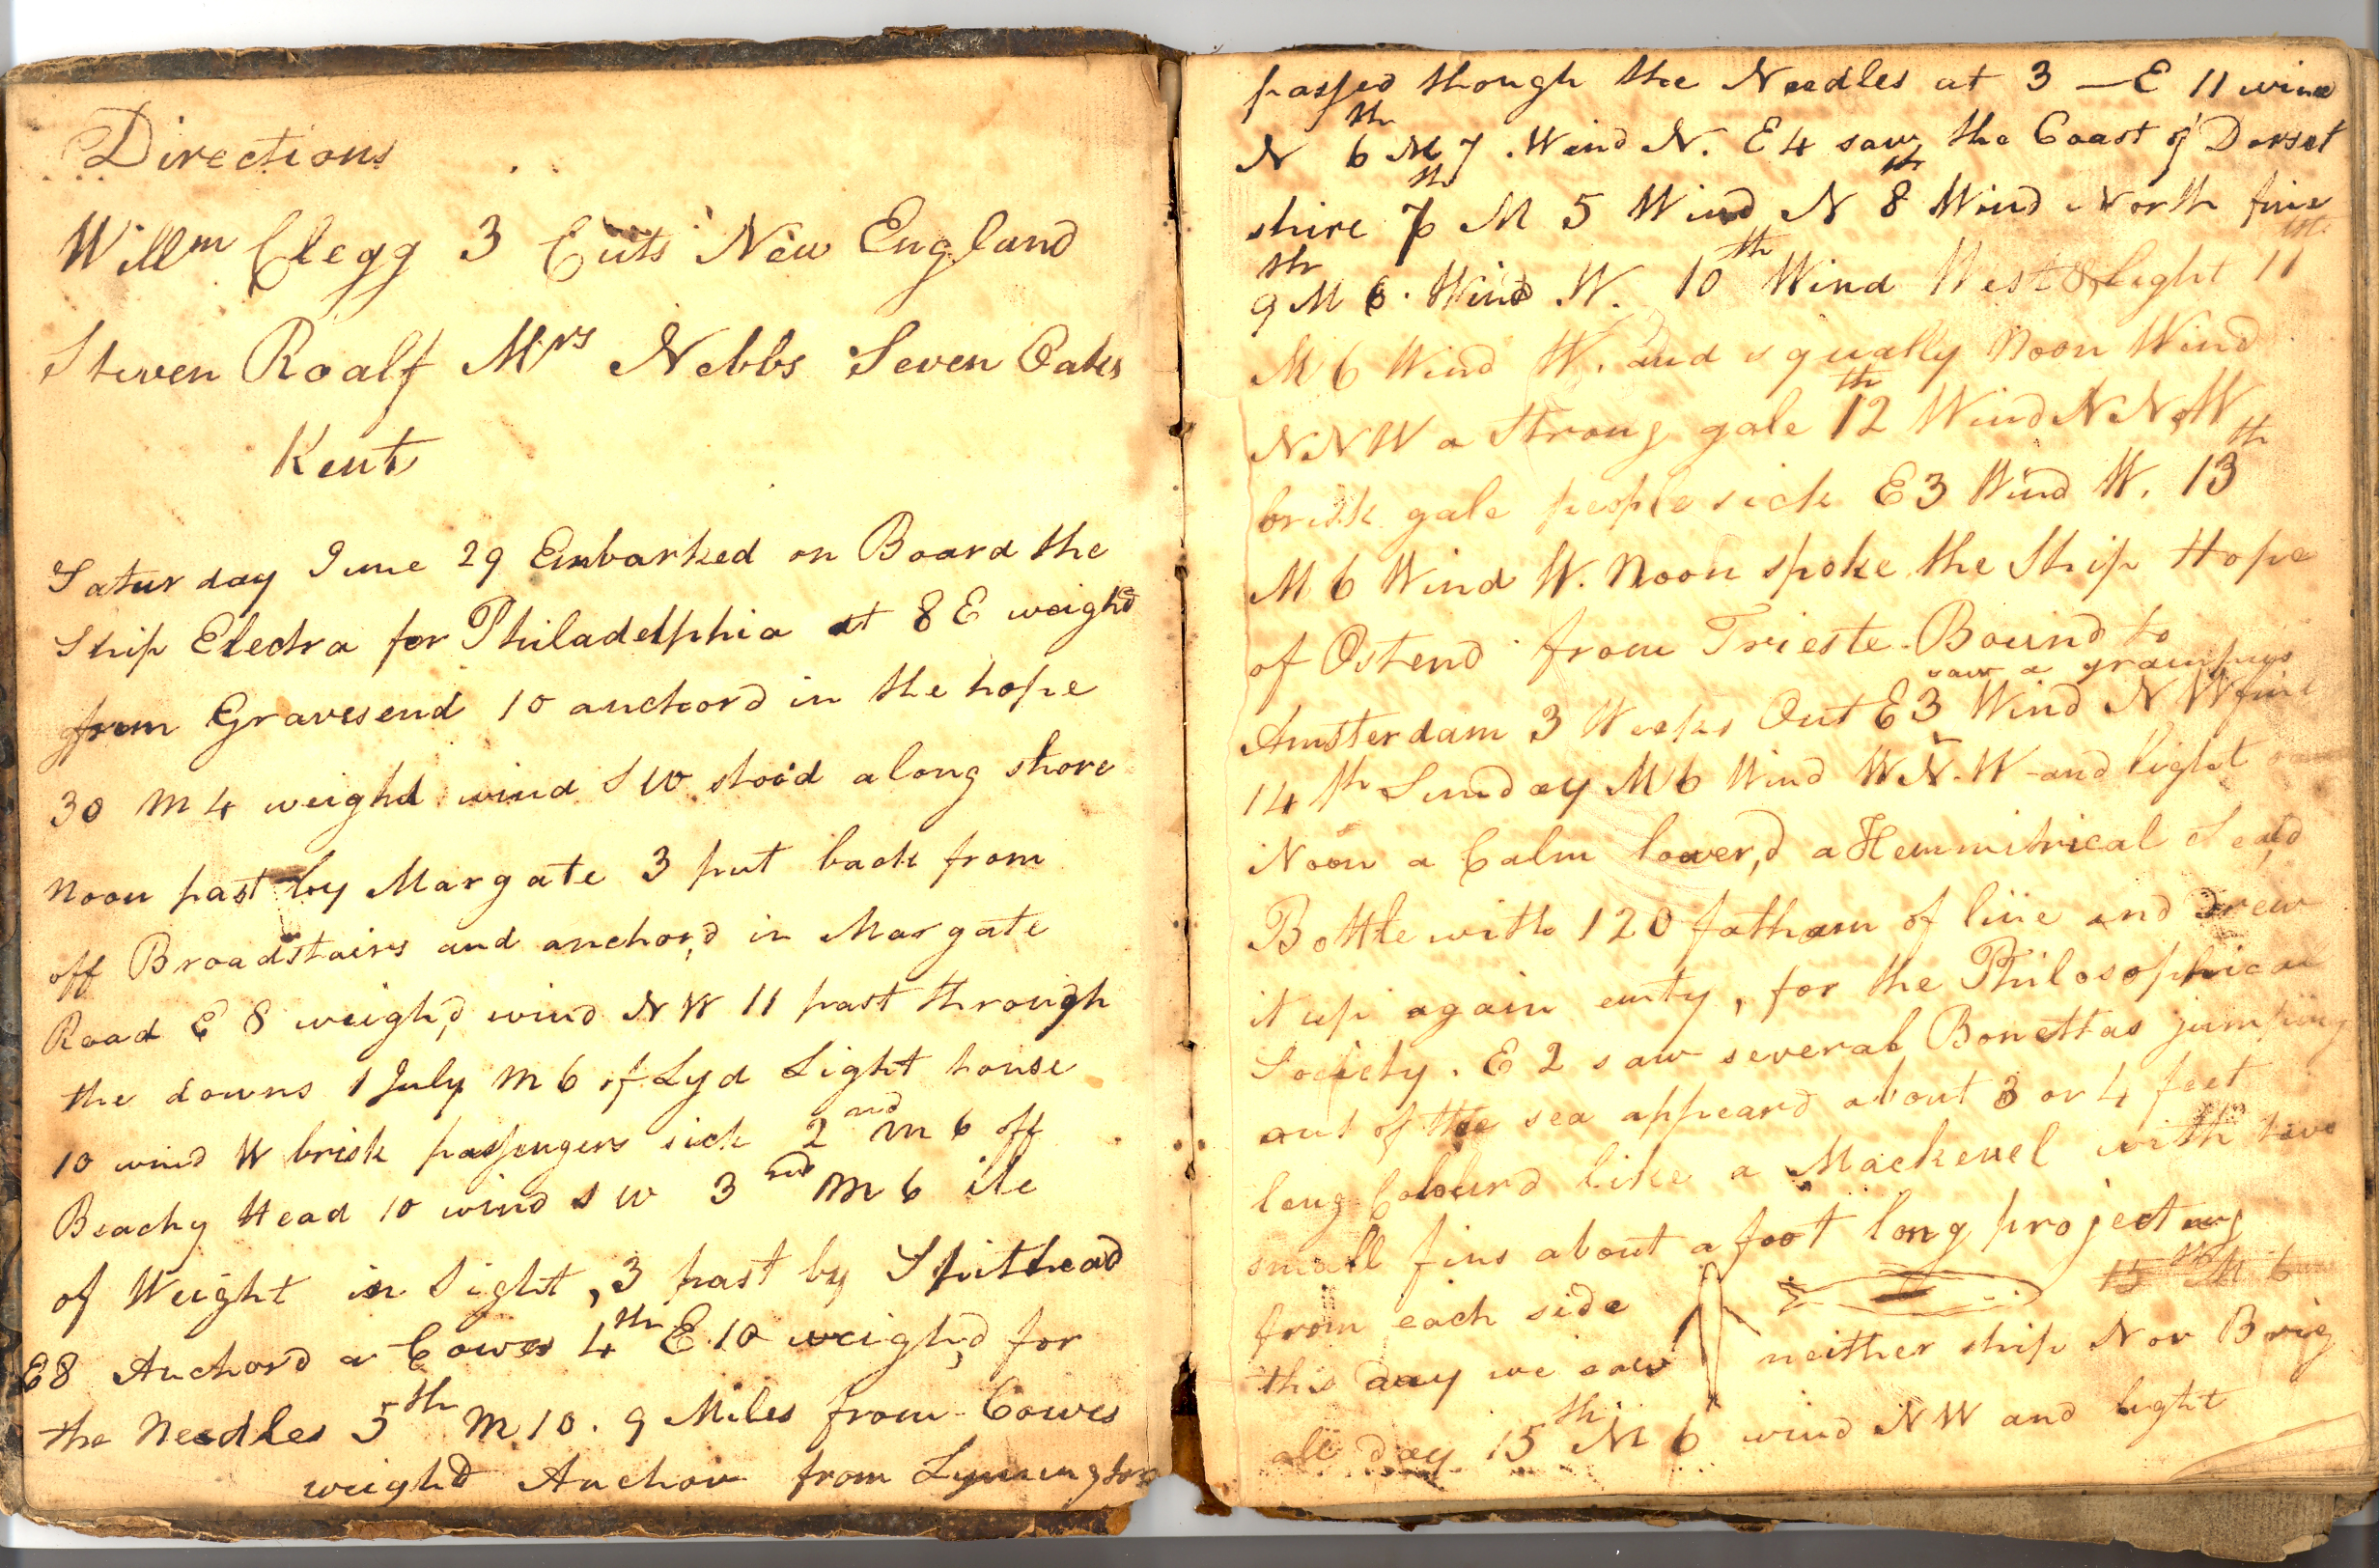 Directions
Willm Clegg 3 Cuts New England
Steven Roalf Mrs Nebbs Seven Oaks
Kent
Saturday June 29 Embarked on Board the
Ship Electra for Philadelphia at 8 E weighd
from Gravesend 10 anchord in the hope
30 M 4 weighd wind S W stood along shore
Noon past by Margate 3 put back from
off Broadstairs and anchor,d in Margate
Road E 8 weigh,d wind N W 11 past through
the downs 1 July M 6 of Lyd Light house
10 wind W brisk passengers sick 2nd M 6 off
Beachy Head 10 wind S W 3nd M 6 ile
of Weight in Sight, 3 past by Spithead
E8 Anchord a Cowes 4th E.10 weigh,d for
the Needles 5th M 10. 9 Miles from Cowes
weighd Anchor from Lymington
passed though the Needles at 3 — E 11 wind
N 6th M 7. Wind N. E 4 saw the Coast of Dorset
shire 7th M 5 Wind N 8th Wind North fine
9th M 6. Wind W. 10th Wind West & light 11th
M 6 Wind W. and squally Noon Wind
NNW a Strong gale 12th Wind NNW
brisk gale people sick E3 Wind W. 13th
M 6 Wind W. Noon spoke the Ship Hope
of Ostend from Trieste Bound to
saw a grampus
Amsterdam 3 Weeks Out E3 Wind N W fine
14th Sunday M 6 Wind W N. W and light
Noon a Calm lower,d a Hemmitrical Seal,d
Bottle with 120 fatham of line and drew
it up again emty, for the Philosophical
Society. E 2 saw several Bonettas jumping
out of the sea appeard about 3 or 4 feet
long Colourd like a Mackerel with two
small fins about a foot long projecting
from each side 15th M 6
this day we saw neither ship Nor Brig
all day 15th M 6 wind N W and light